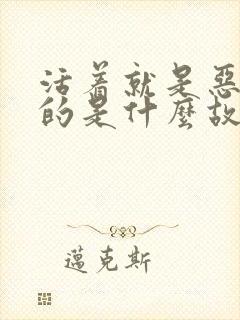 活着就是恶
的是什麽故
邁克斯